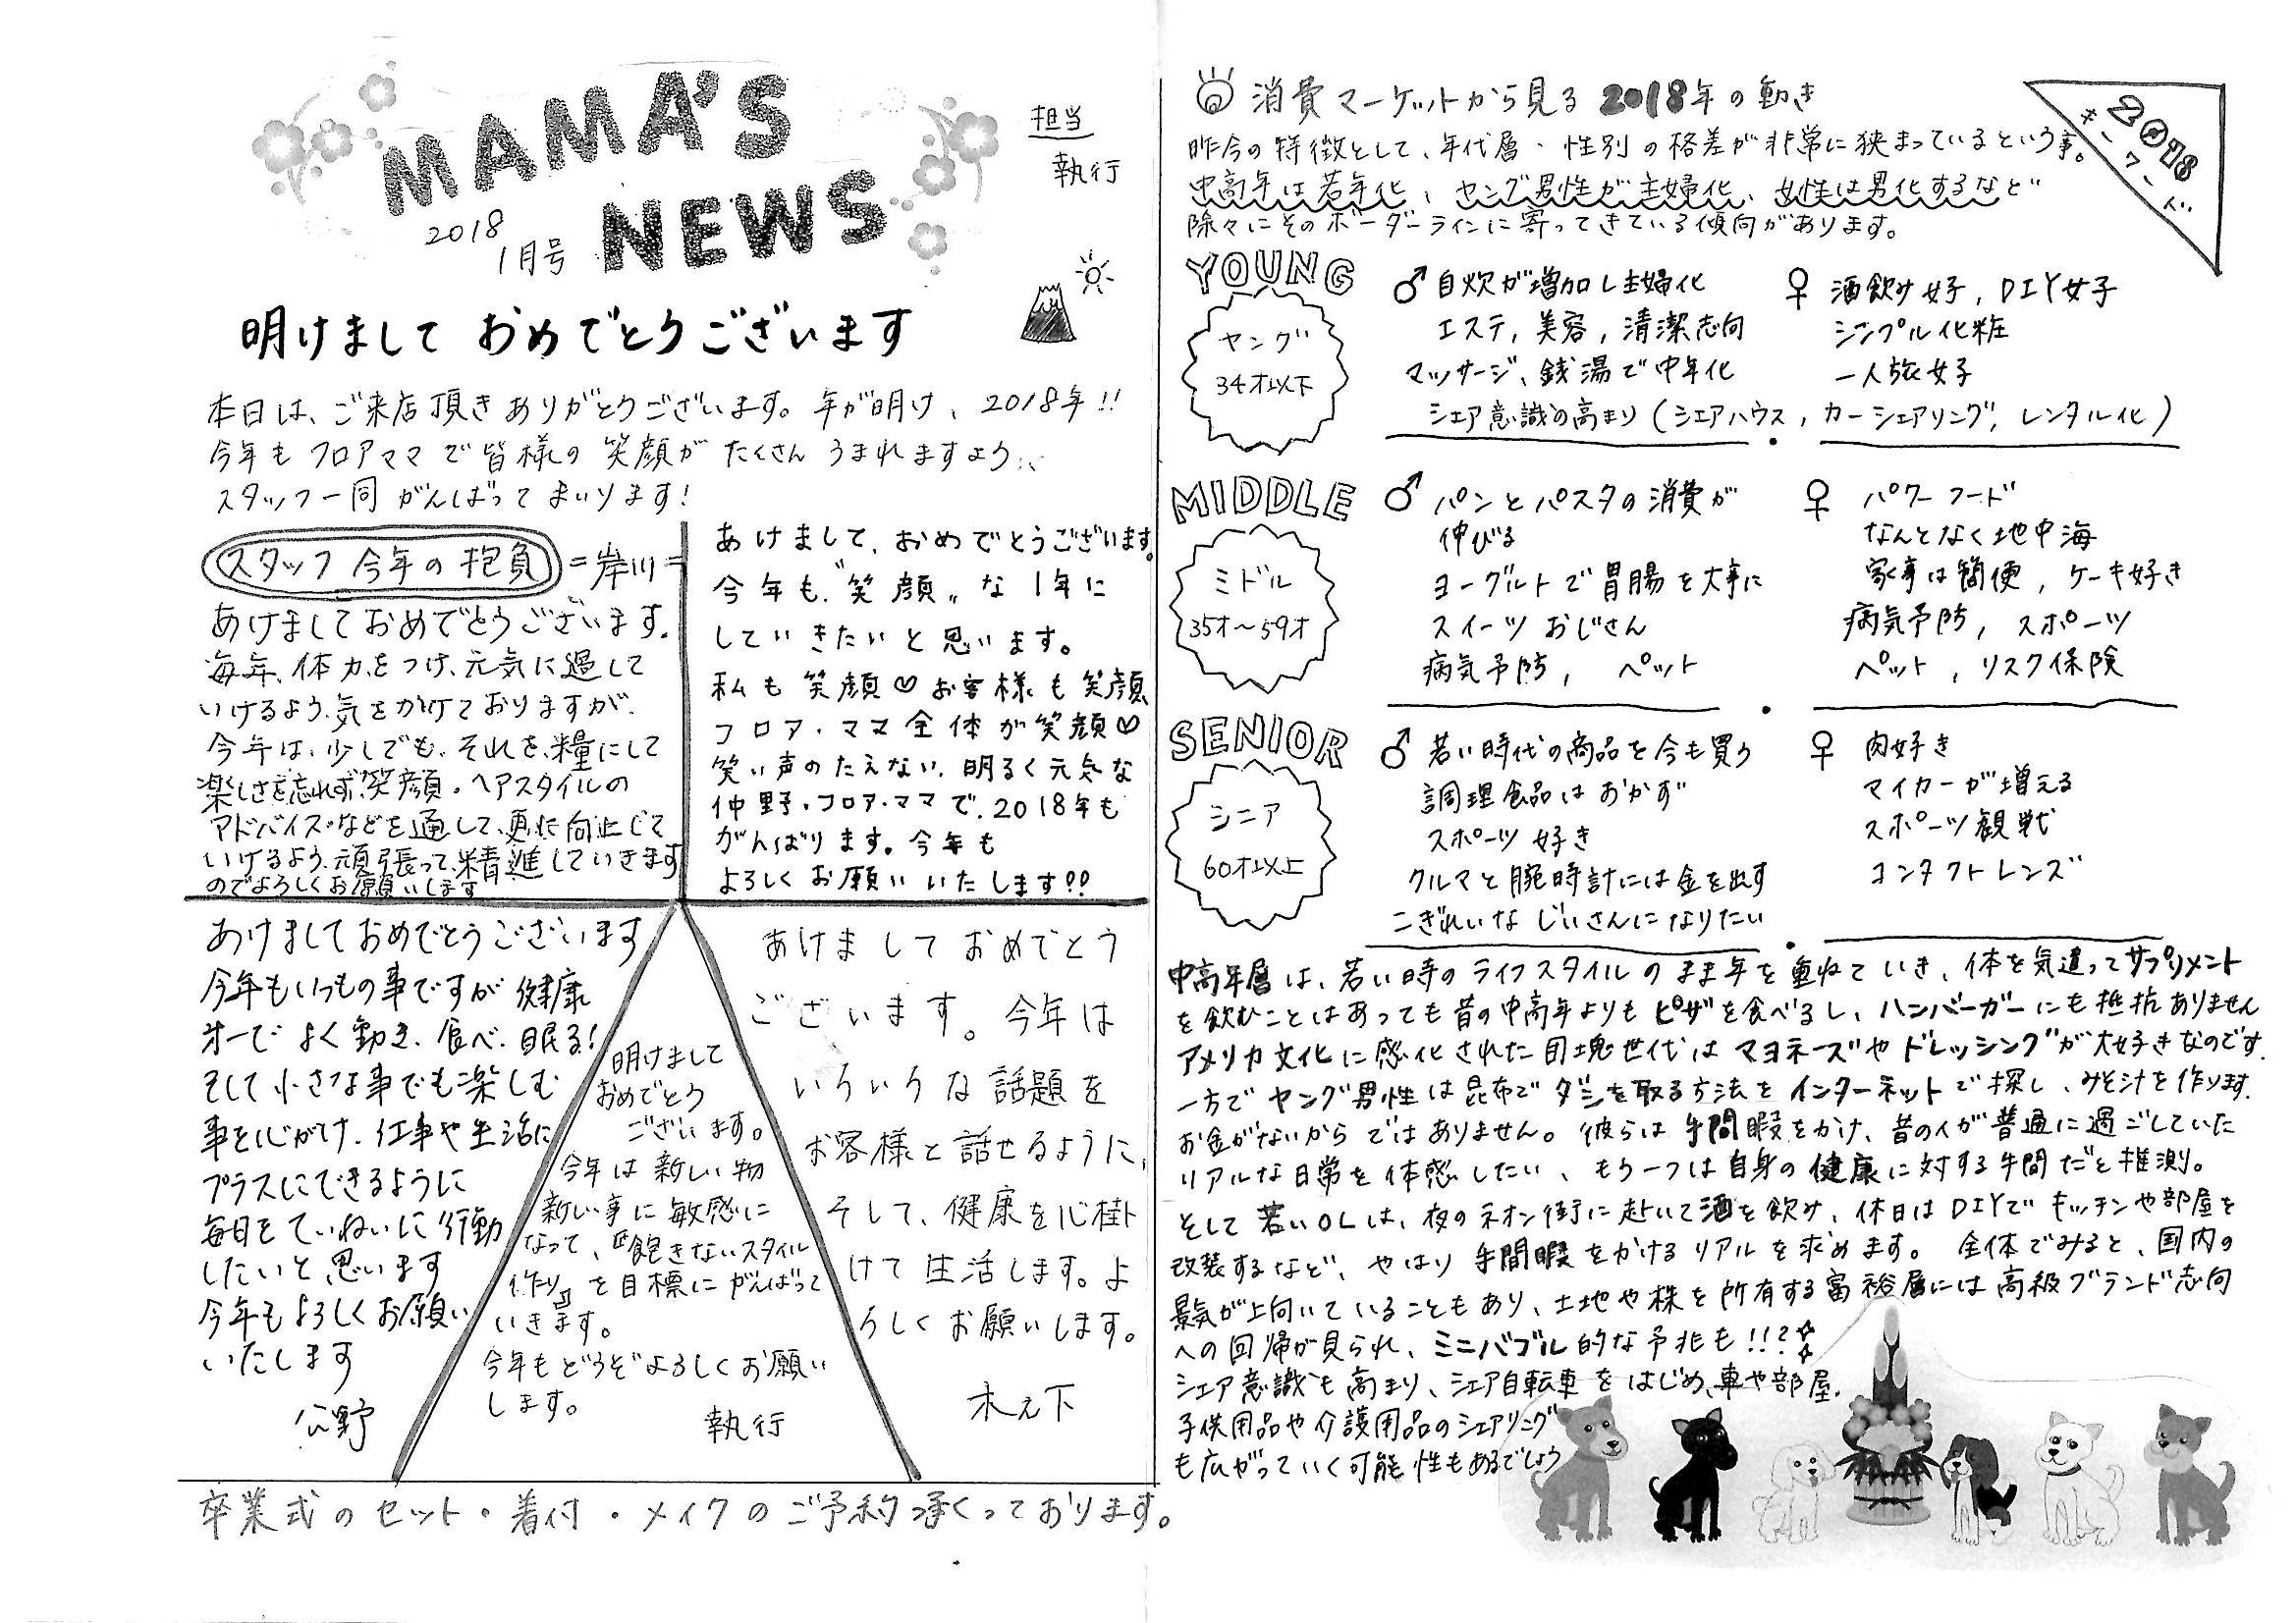 MAMA'S
NEWS
2018
1月号
担当
執行
明けまして おめでとうございます
本日は、ご来店頂きありがとうございます。年が明け、2018年!!
今年も フロアママで皆様の 笑顔が たくさん うまれますよう、
スタッフ一同 がんばって まいります!
スタッフ 今年の抱負 =岸川=
あけましておめでとうございます.
毎年、体力をつけ、元気に過して
いけるよう、気をかけておりますが、
今年は、少しでも、それを、糧にして
楽しさを忘れず、笑顔。ヘアスタイルの
アドバイスなどを通して、更に向上して
いけるよう、頑張って、精進していきます
のでよろしくお願いします
あけまして、おめでとうございます。
今年も“笑顔〃な 1年に
していきたいと思います。
私も 笑顔♡お客様も笑顔
フロア・ママ全体が笑顔♡
笑い声のたえない、明るく元気な
仲野・フロア・ママで、2018年も
がんばります。今年も
よろしくお願いいたします!!
あけましておめでとうございます
今年もいつもの事ですが健康
オーで よく動き、食べ、眠る!
そして小さな事でも楽しむ
事を心がけ、仕事や生活に
プラスにできるように
毎日をていねいに行動
したいと思います
今年もよろしくお願い
いたします
公野
明けまして
おめでとう
ございます。
今年は新しい物
新しい事に敏感に
なって、『飽きないスタイル
作り』を目標にがんばって
いきます。
今年もどうぞよろしくお願い
します。
執行
あけましておめでとう
ございます。今年は
いろいろな話題を
お客様と話せるように、
そして、健康を心掛
けて生活します。よ
ろしくお願いします。
木之下
卒業式のセット・着付・メイクのご予約承くっております。
消費マーケットから見る2018年の動き
2018
キーワード
昨今の特徴として、年代層・性別の格差が非常に狭まっているという事。
中高年は若年化、ヤング男性が主婦化、女性は男化するなど
除々にそのボーダーラインに寄ってきている傾向があります。
YOUNG
ヤング
34才以下
♂ 自炊が増加し主婦化
エステ, 美容, 清潔志向
マッサージ、銭湯で中年化
♀ 酒飲み女子, DIY女子
シンプル化粧
一人旅女子
シェア意識の高まり(シェアハウス, カーシェアリング, レンタル化)
MIDDLE
ミドル
35才〜59才
♂ パンとパスタの消費が
伸びる
ヨーグルトで胃腸を大事に
スイーツおじさん
病気予防, ペット
♀ パワーフード
なんとなく地中海
家事は簡便, ケーキ好き
病気予防, スポーツ
ペット, リスク保険
SENIOR
シニア
60才以上
♂ 若い時代の商品を今も買う
調理食品はおかず
スポーツ好き
クルマと腕時計には金を出す
こぎれいなじいさんになりたい
♀ 肉好き
マイカーが増える
スポーツ観戦
コンタクトレンズ
中高年層は、若い時のライフスタイルのまま年を重ねていき、体を気遣ってサプリメント
を飲むことはあっても昔の中高年よりもピザを食べるし、ハンバーガーにも抵抗ありません
アメリカ文化に感化された団塊世代はマヨネーズやドレッシングが大好きなのです.
一方でヤング男性は昆布でダシを取る方法をインターネットで探し、みそ汁を作ります.
お金がないからではありません。彼らは手間暇をかけ、昔の人が普通に過ごしていた
リアルな日常を体感したい、もう一つは自身の健康に対する手間だと推測。
そして若いOLは、夜のネオン街に赴いて酒を飲み、休日はDIYでキッチンや部屋を
改装するなど、やはり手間暇をかけるリアルを求めます。全体でみると、国内の
景気が上向いていることもあり、土地や株を所有する富裕層には高級ブランド志向
への回帰が見られ、ミニバブル的な予兆も!!?
シェア意識も高まり、シェア自転車をはじめ、車や部屋.
子供用品や介護用品のシェアリング
も広がっていく可能性もあるでしょう